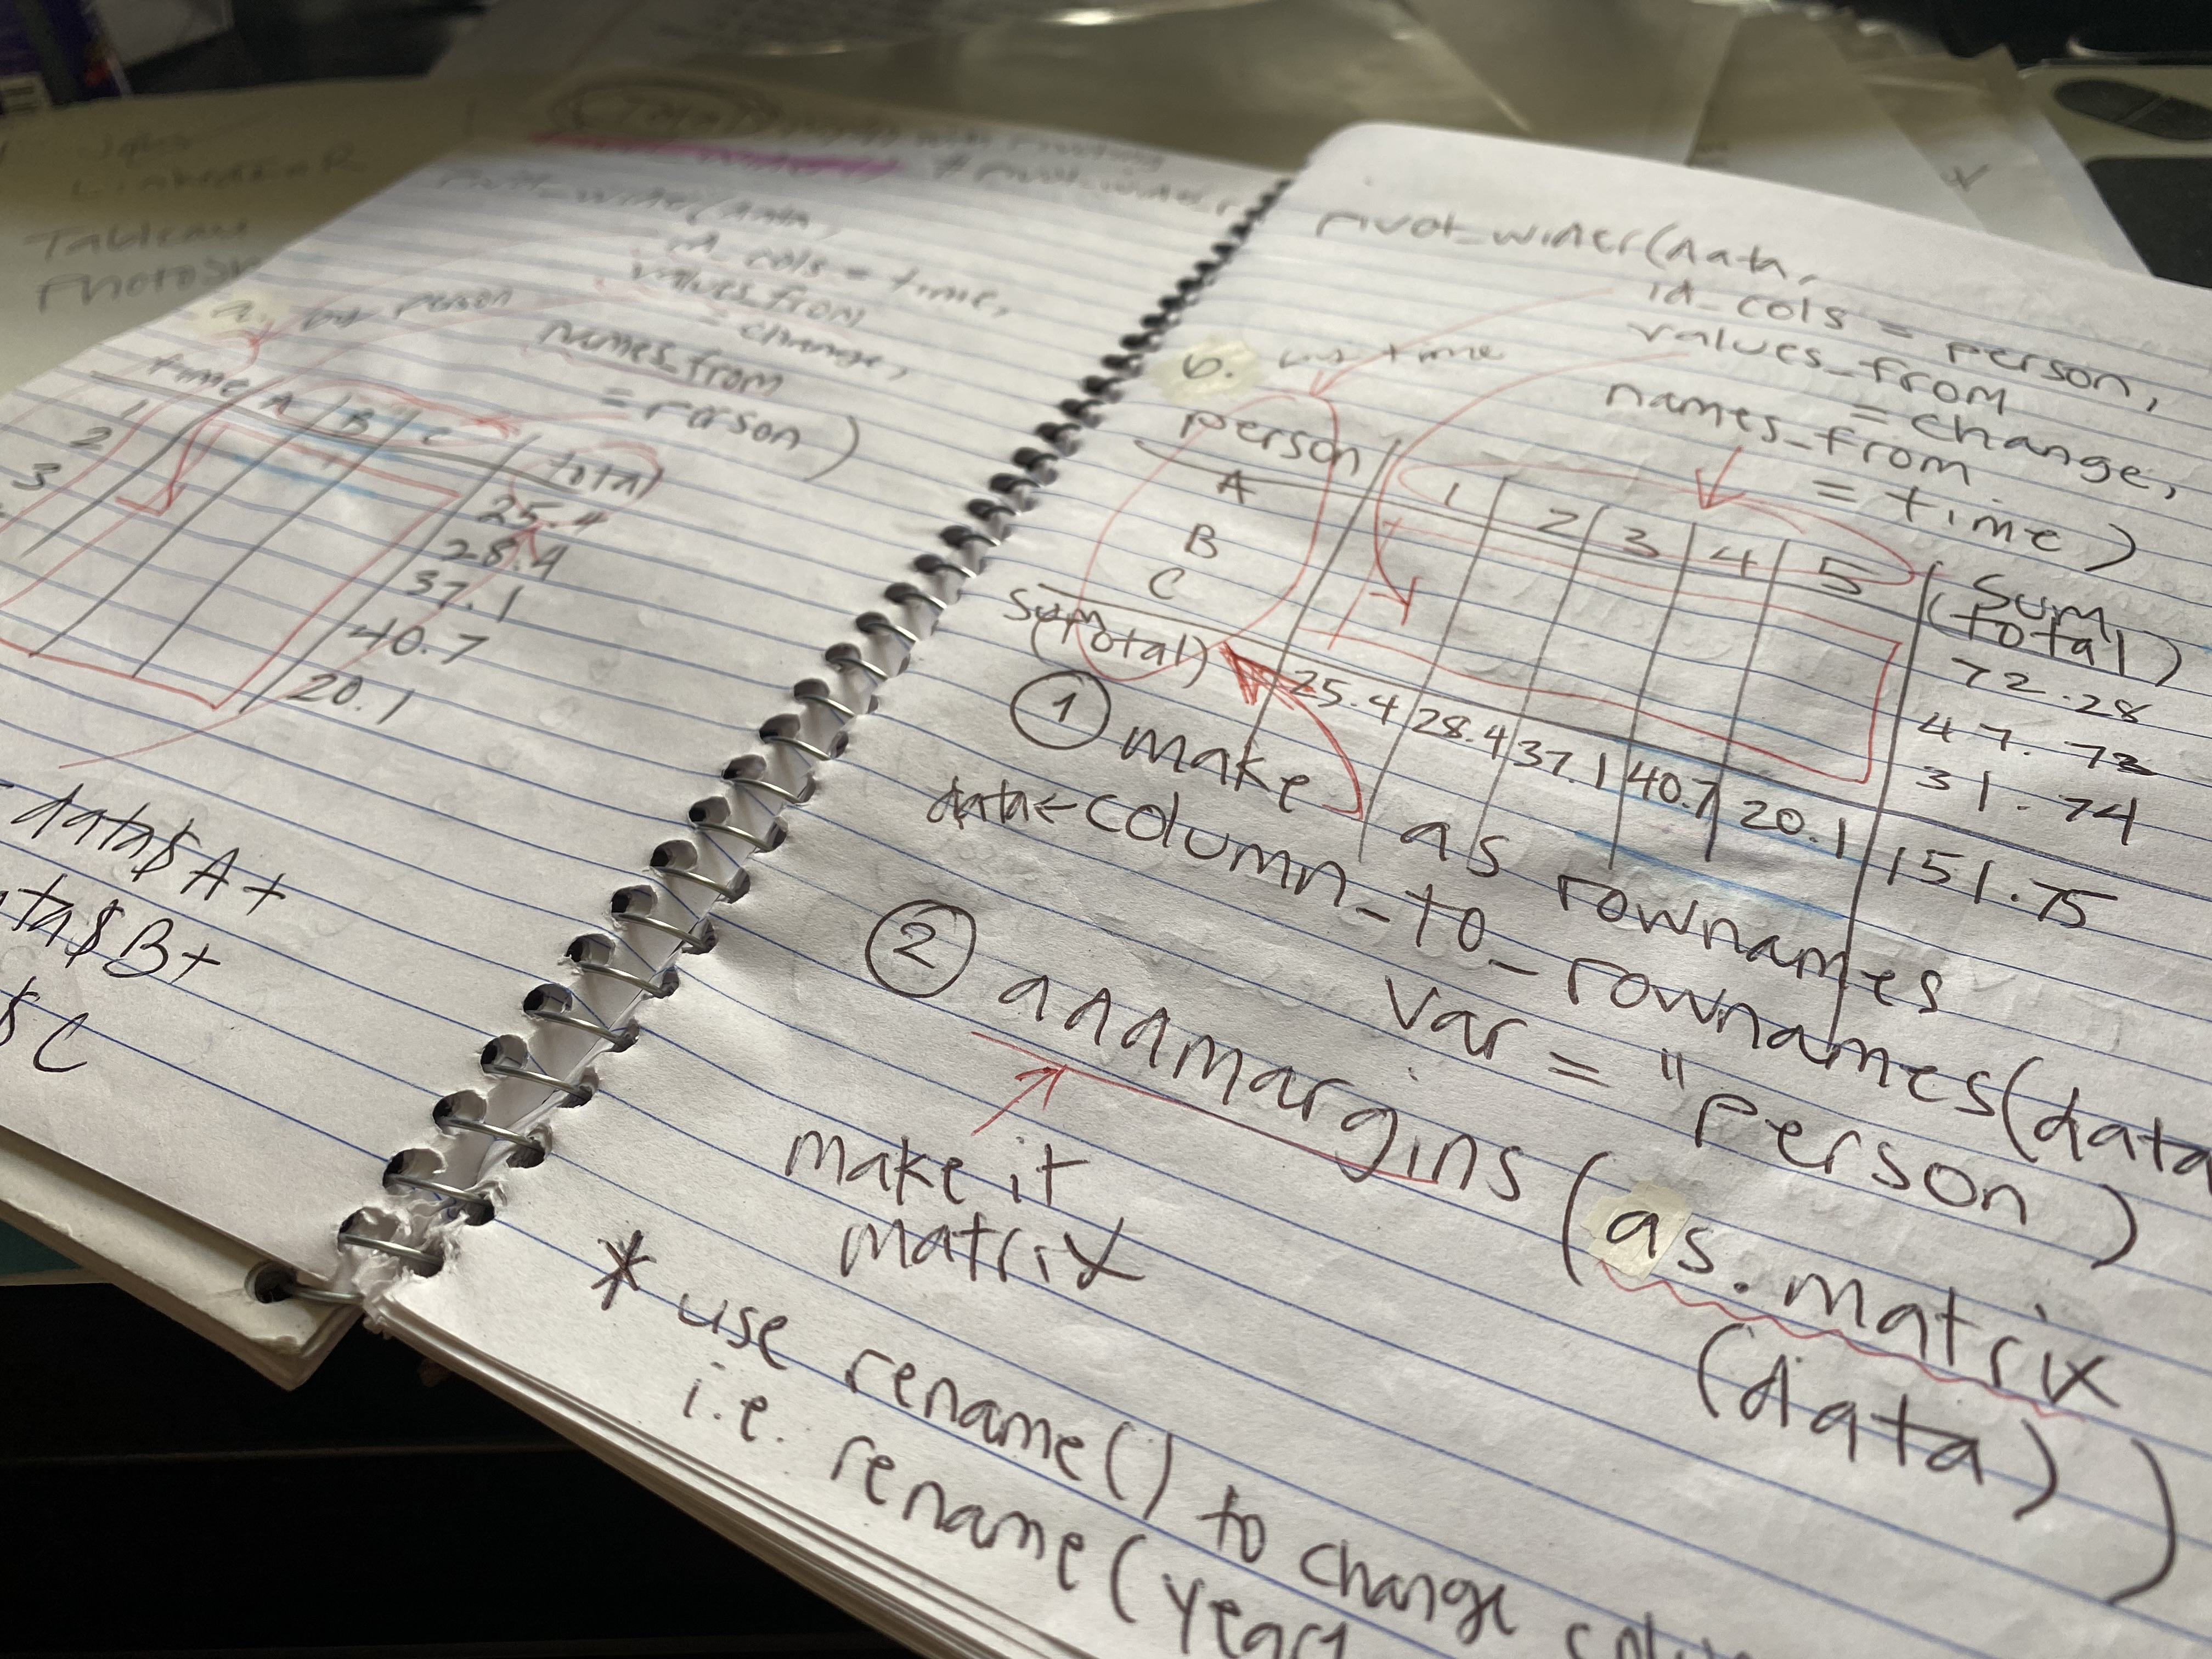 Tableau
pivot_wider(data,
id_cols = time,
values_from
= change,
names_from
= person)
a. by person
time A B C total
1 25.4
2 28.4
3 37.1
40.7
20.1
data$A+
$B+
$C
pivot_wider(data,
id_cols = person,
values_from
= change,
names_from
= time)
b. by time
person 1 2 3 4 5 Sum
(total)
A 72.28
B 47.73
C 31.74
Sum
(total) 25.4 28.4 37.1 40.7 20.1 151.75
1 make as rownames
data<-column_to_rownames(data
var = "person)
2 addmargins (as.matrix
(data))
make it
matrix
* use rename() to change
i.e. rename(year